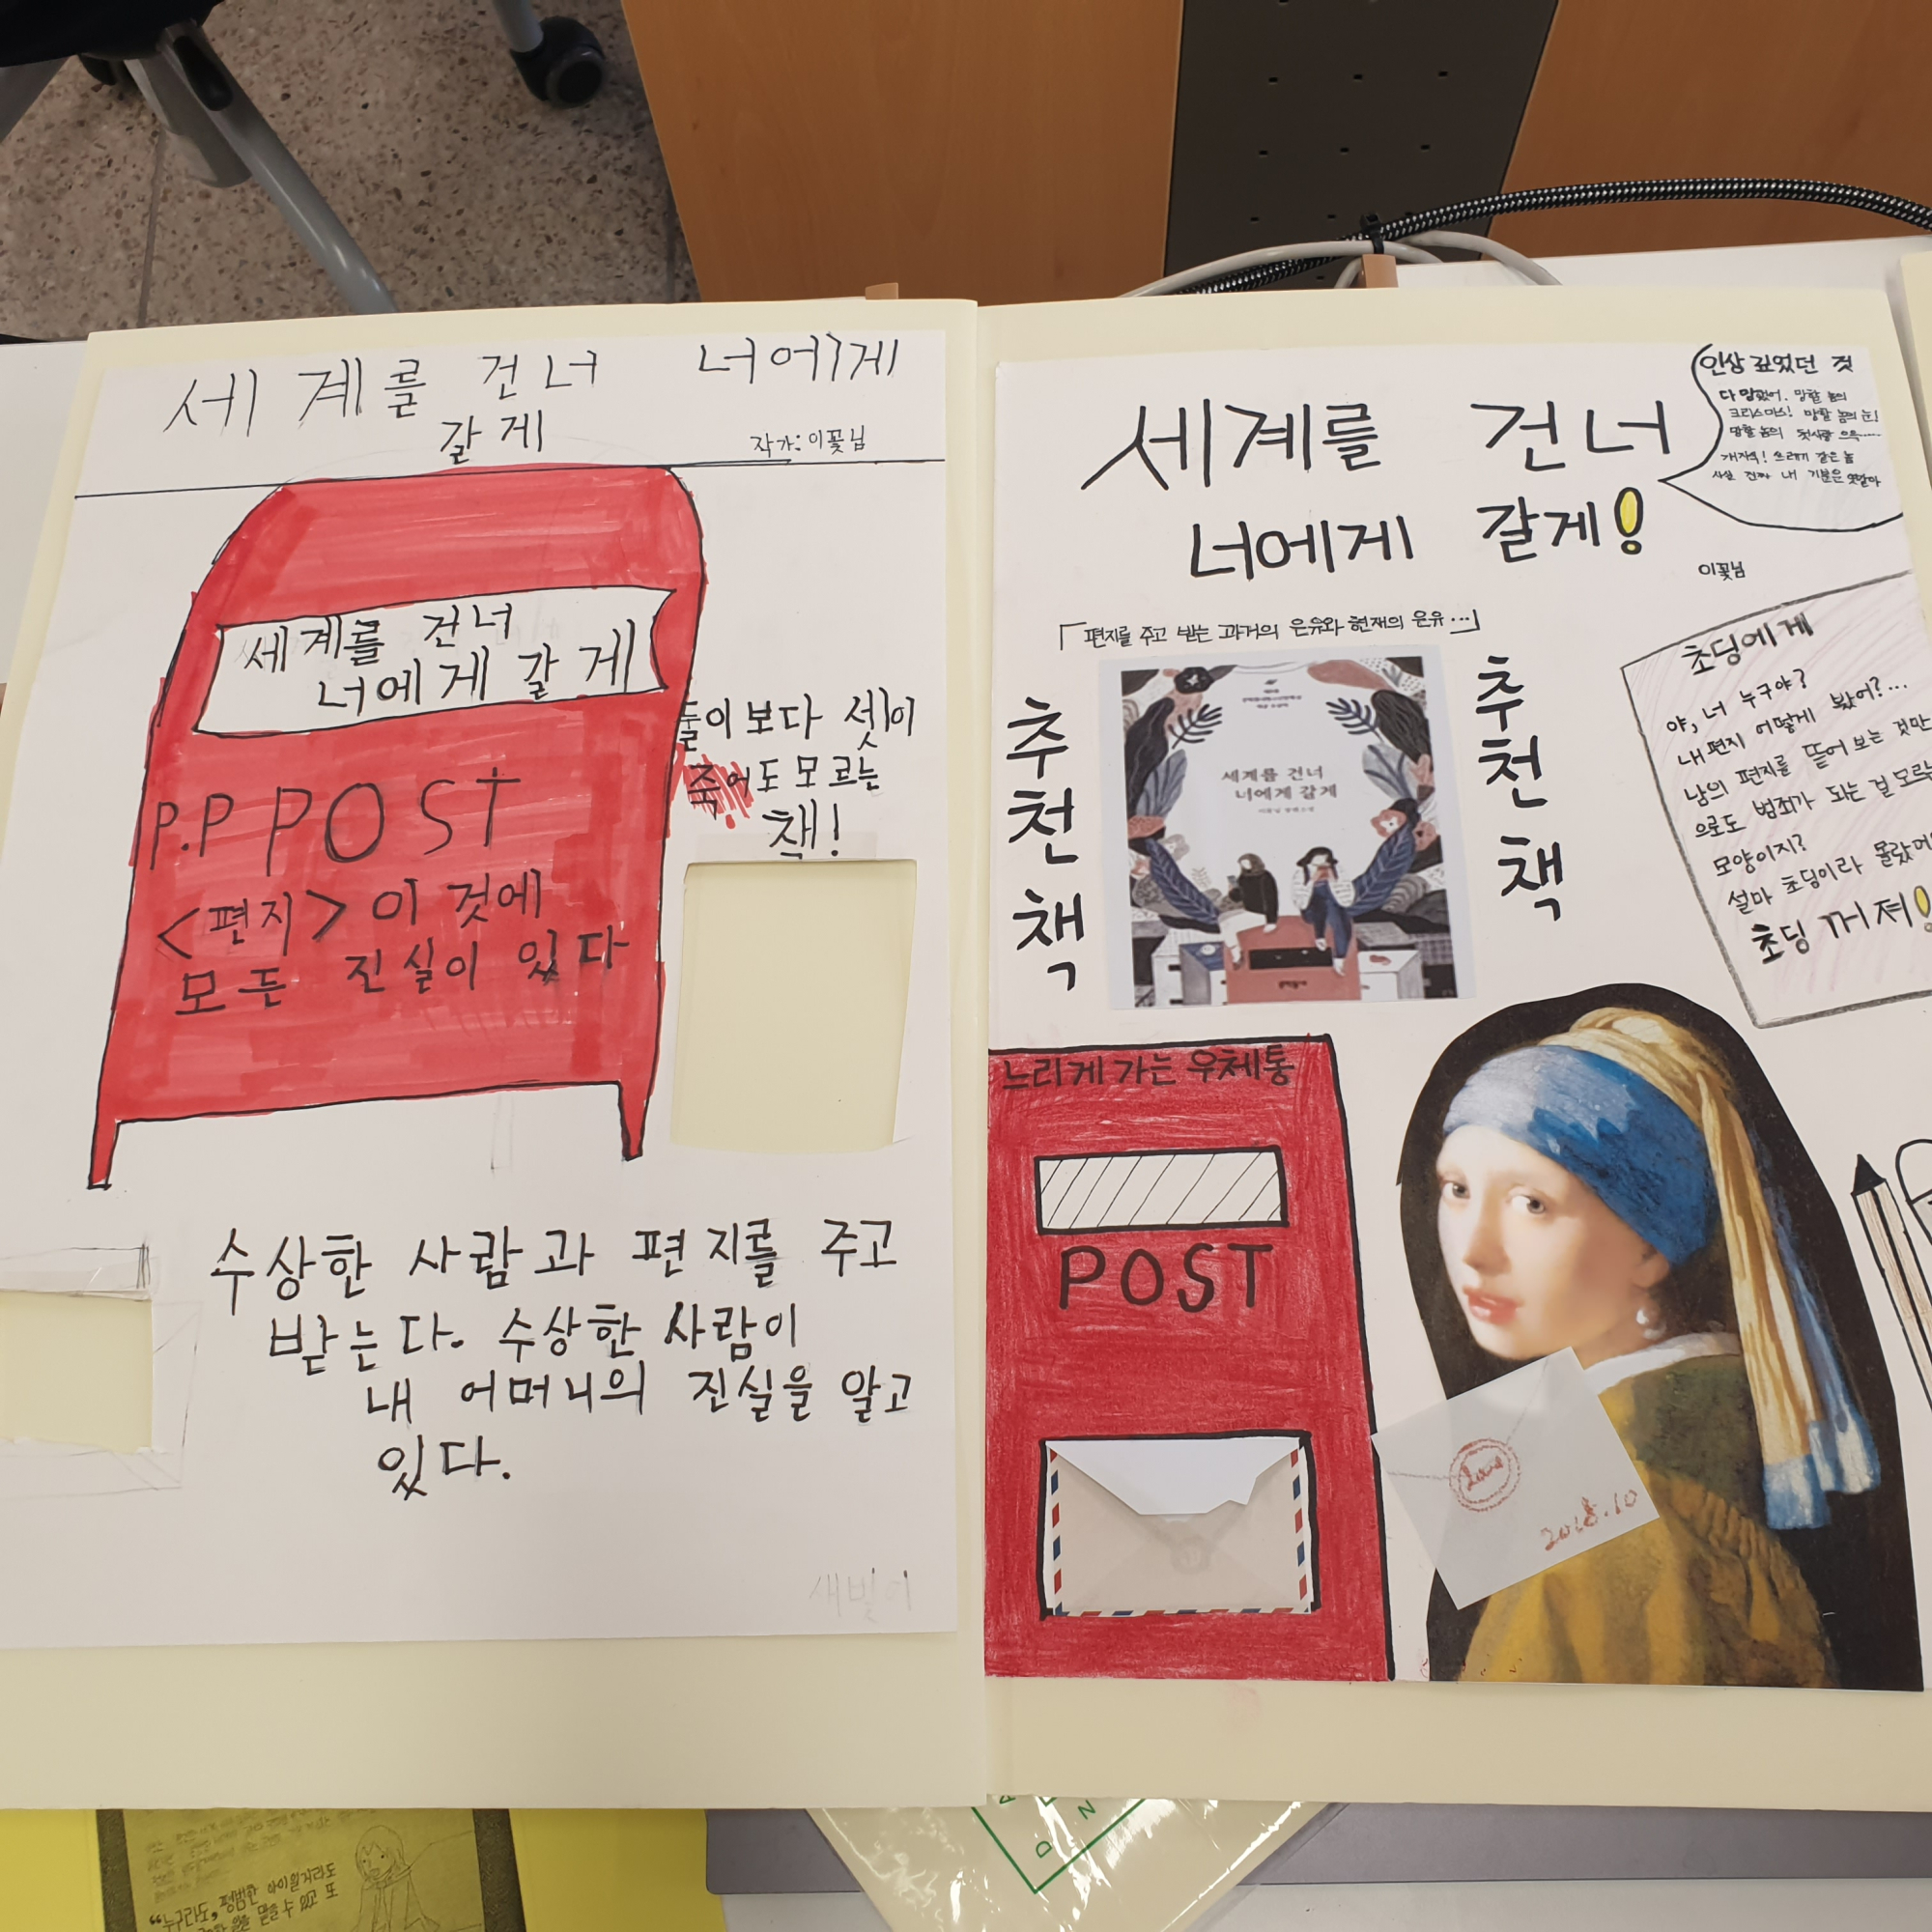 세계를 건너 너에게
갈게
작가: 이꽃님
세계를 건너
너에게 갈게
P.P POST
<편지> 이 것에
모든 진실이 있다
둘이 보다 셋이
죽어도 모르는
책!
수상한 사람과 편지를 주고
받는다. 수상한 사람이
내 어머니의 진실을 알고
있다.
새빛이
세계를 건너
너에게 갈게!
인상 깊었던 것
다 망했어. 망할 놈의
크리스마스! 망할 놈의 눈!
망할 놈의 첫사랑 으윽.....
개자식! 쓰레기 같은 놈
사실 진짜 내 기분은
이꽃님
「편지를 주고 받는 과거의 은유와 현재의 은유...」
추천책
세계를 건너
너에게 갈게
추천책
초딩에게
야, 너 누구야?
내 편지 어떻게 봤어?...
남의 편지를 뜯어 보는 것만
으로도 범죄가 되는 걸 모르는
모양이지?
설마 초딩이라 몰랐
초딩 꺼져!
느리게 가는 우체통
POST
Love
2018.10
"누구라도, 평범한 아이일지라도